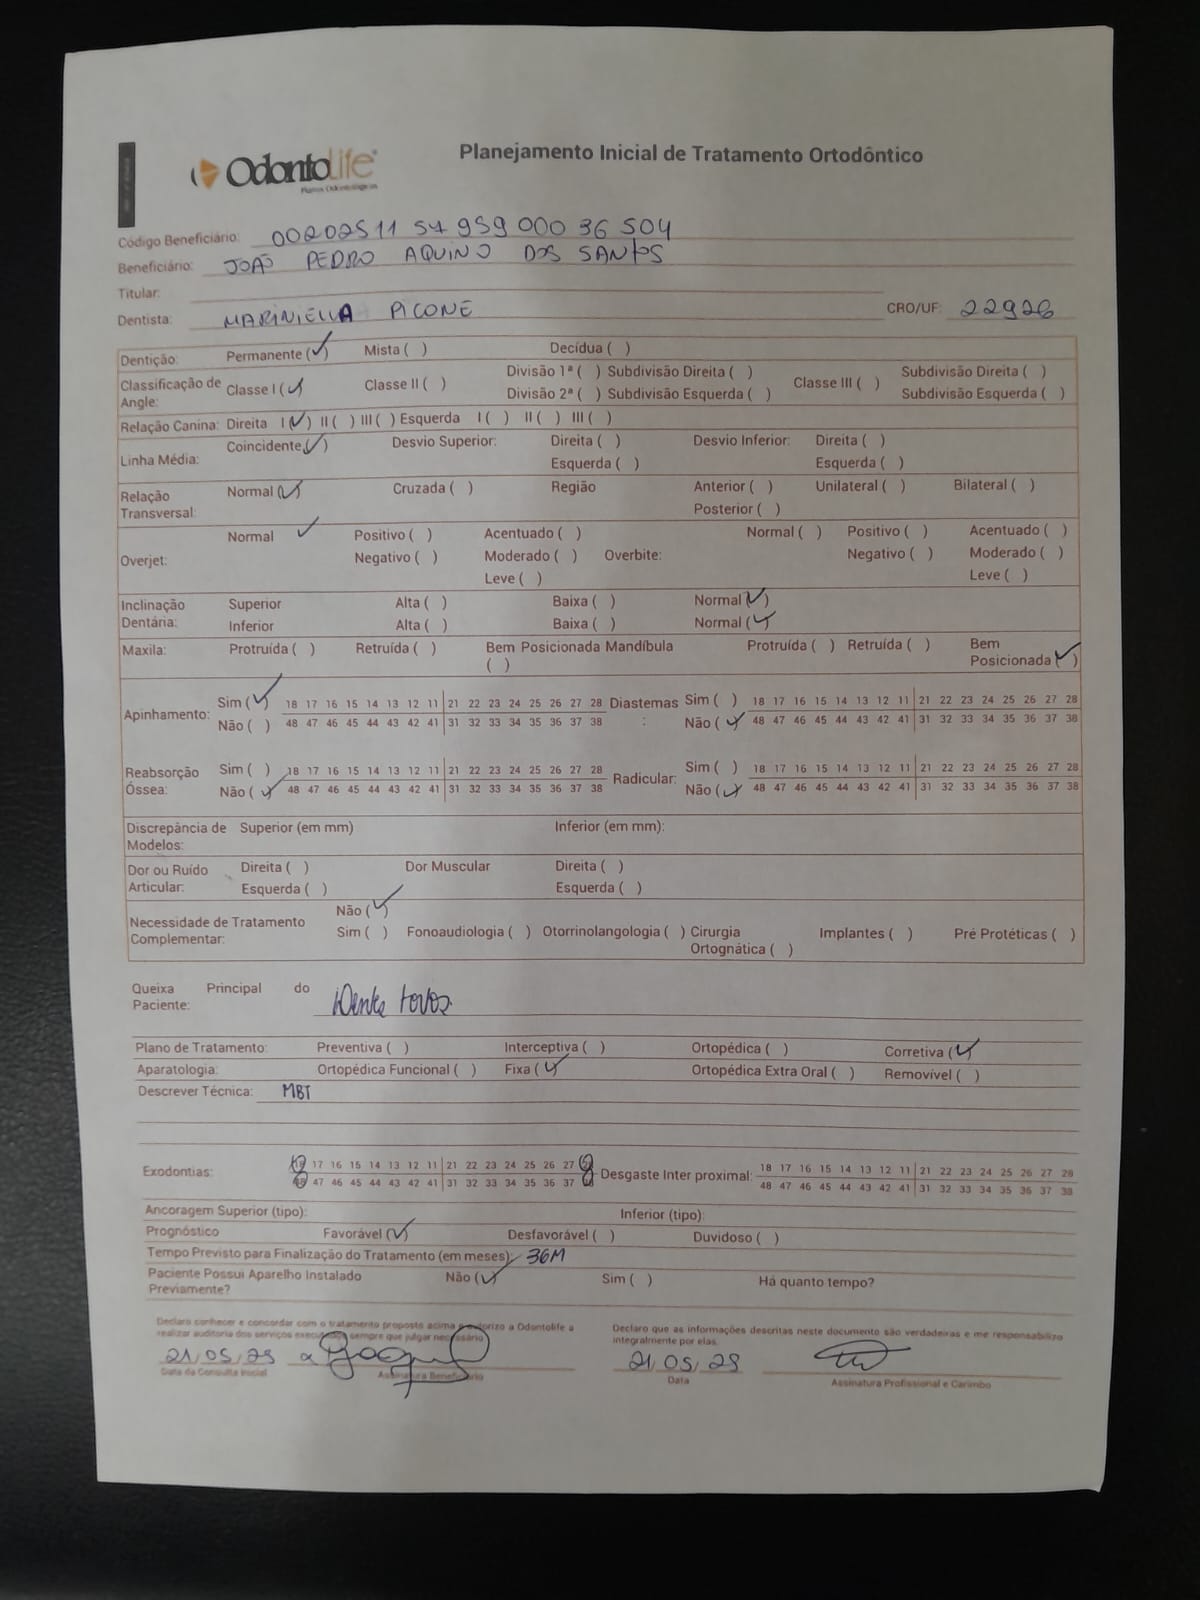 OdontoLife
Planos Odontológicos
Planejamento Inicial de Tratamento Ortodôntico
Código Beneficiário: 00202511 54 959 000 36 504
Beneficiário: JOÃO PEDRO AQUINO DOS SANTOS
Titular:
Dentista: MARINIELLA PICONE CRO/UF: 22926
Dentição: Permanente (✓) Mista ( ) Decídua ( )
Classificação de Angle: Classe I (✓) Classe II ( ) Divisão 1ª ( ) Subdivisão Direita ( ) Classe III ( ) Subdivisão Direita ( )
Divisão 2ª ( ) Subdivisão Esquerda ( ) Subdivisão Esquerda ( )
Relação Canina: Direita I (✓) II ( ) III ( ) Esquerda I ( ) II ( ) III ( )
Linha Média: Coincidente (✓) Desvio Superior: Direita ( ) Desvio Inferior: Direita ( )
Esquerda ( ) Esquerda ( )
Relação Transversal: Normal (✓) Cruzada ( ) Região Anterior ( ) Unilateral ( ) Bilateral ( )
Posterior ( )
Overjet: Normal ✓ Positivo ( ) Acentuado ( ) Overbite: Normal ( ) Positivo ( ) Acentuado ( )
Negativo ( ) Moderado ( ) Negativo ( ) Moderado ( )
Leve ( ) Leve ( )
Inclinação Dentária: Superior Alta ( ) Baixa ( ) Normal (✓)
Inferior Alta ( ) Baixa ( ) Normal (✓)
Maxila: Protruída ( ) Retruída ( ) Bem Posicionada ( ) Mandíbula Protruída ( ) Retruída ( ) Bem Posicionada (✓)
Apinhamento: Sim (✓) 18 17 16 15 14 13 12 11 21 22 23 24 25 26 27 28 Diastemas: Sim ( ) 18 17 16 15 14 13 12 11 21 22 23 24 25 26 27 28
Não ( ) 48 47 46 45 44 43 42 41 31 32 33 34 35 36 37 38 Não (✓) 48 47 46 45 44 43 42 41 31 32 33 34 35 36 37 38
Reabsorção Óssea: Sim ( ) 18 17 16 15 14 13 12 11 21 22 23 24 25 26 27 28 Radicular: Sim ( ) 18 17 16 15 14 13 12 11 21 22 23 24 25 26 27 28
Não (✓) 48 47 46 45 44 43 42 41 31 32 33 34 35 36 37 38 Não (✓) 48 47 46 45 44 43 42 41 31 32 33 34 35 36 37 38
Discrepância de Modelos: Superior (em mm) Inferior (em mm):
Dor ou Ruído Articular: Direita ( ) Dor Muscular Direita ( )
Esquerda ( ) Esquerda ( )
Necessidade de Tratamento Complementar: Não (✓)
Sim ( ) Fonoaudiologia ( ) Otorrinolangologia ( ) Cirurgia Ortognática ( ) Implantes ( ) Pré Protéticas ( )
Queixa Principal do Paciente: Dente
Plano de Tratamento: Preventiva ( ) Interceptiva ( ) Ortopédica ( ) Corretiva (✓)
Aparatologia: Ortopédica Funcional ( ) Fixa (✓) Ortopédica Extra Oral ( ) Removível ( )
Descrever Técnica: MBT
Exodontias: 18 17 16 15 14 13 12 11 21 22 23 24 25 26 27 28 Desgaste Inter proximal: 18 17 16 15 14 13 12 11 21 22 23 24 25 26 27 28
48 47 46 45 44 43 42 41 31 32 33 34 35 36 37 38 48 47 46 45 44 43 42 41 31 32 33 34 35 36 37 38
Ancoragem Superior (tipo): Inferior (tipo):
Prognóstico Favorável (✓) Desfavorável ( ) Duvidoso ( )
Tempo Previsto para Finalização do Tratamento (em meses): 36M
Paciente Possui Aparelho Instalado Previamente? Não (✓) Sim ( ) Há quanto tempo?
Declaro conhecer e concordar com o tratamento proposto acima e autorizo a Odontolife a
realizar auditoria dos serviços executados sempre que julgar necessário
Declaro que as informações descritas neste documento são verdadeiras e me responsabilizo
integralmente por elas.
21/05/25 21/05/25
Data da Consulta Inicial Assinatura Beneficiário Data Assinatura Profissional e Carimbo